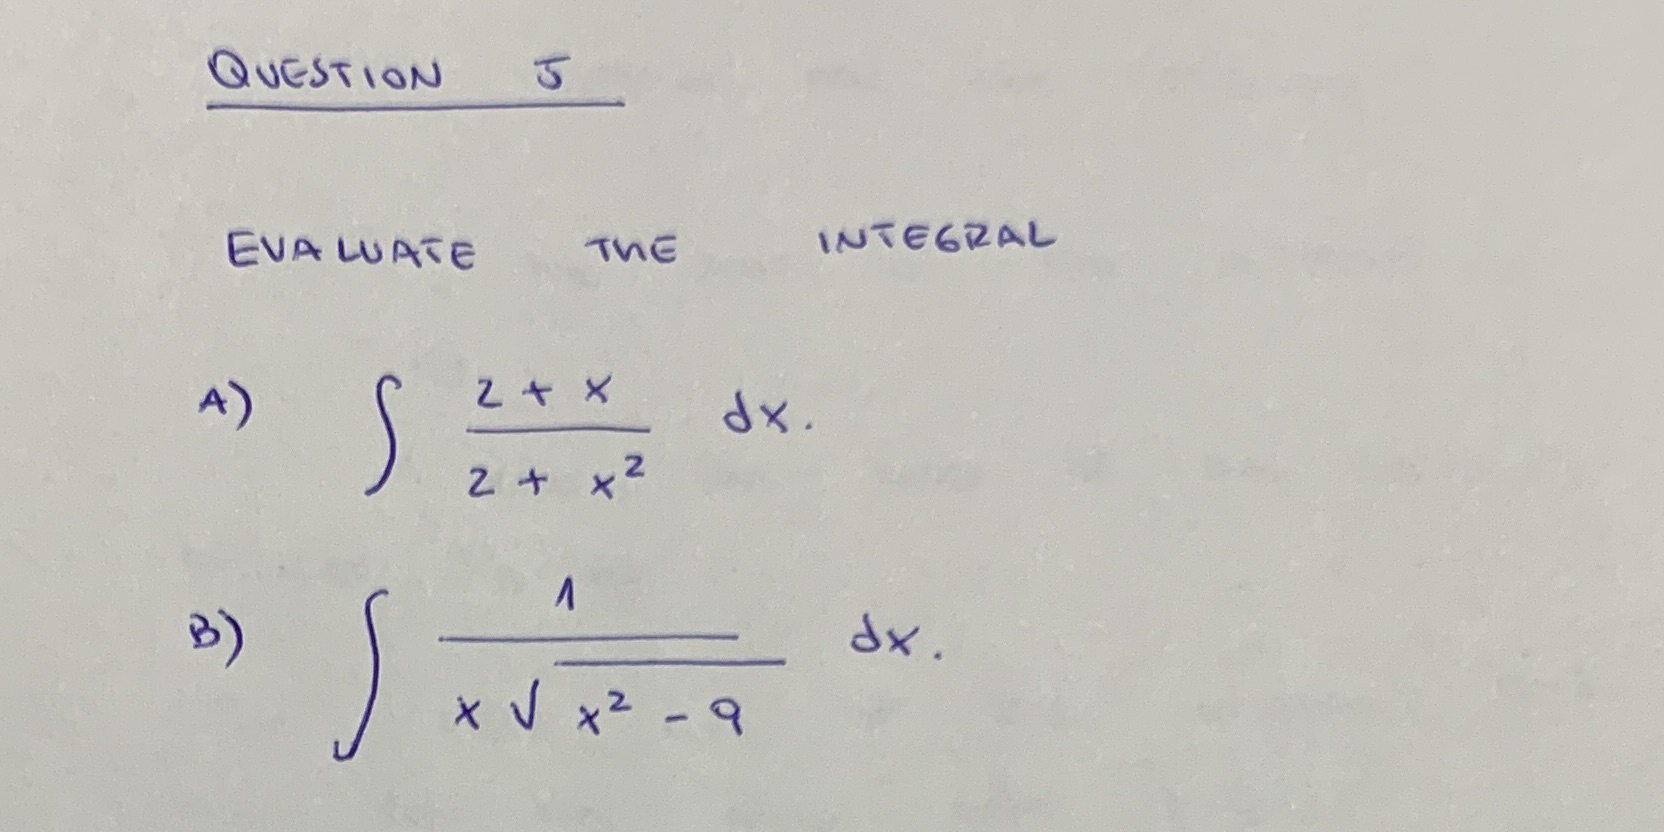 QUESTION 5
EVALUATE THE INTEGRAL
A) ∫ (2 + x)/(2 + x²) dx.
B) ∫ 1/(x√(x² - 9)) dx.